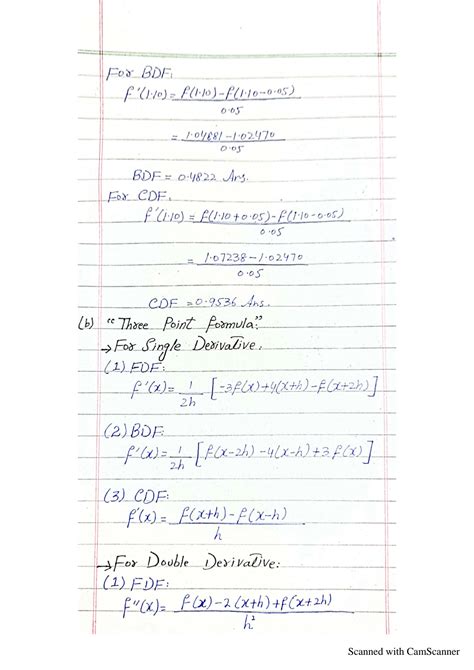 For BDF:
f'(1.10) = f(1.10) - f(1.10 - 0.05)
0.05
= 1.04881 - 1.02470
0.05
BDF = 0.4822 Ans.
For CDF:
f'(1.10) = f(1.10 + 0.05) - f(1.10 - 0.05)
0.05
= 1.07238 - 1.02470
0.05
CDF = 0.9536 Ans.
(b) "Three Point formula":
→ For Single Derivative.
(1) FDF:
f'(x) = 1/2h [-3f(x) + 4(x+h) - f(x+2h)]
(2) BDF:
f'(x) = 1/2h [f(x-2h) - 4(x-h) + 3f(x)]
(3) CDF:
f'(x) = f(x+h) - f(x-h)
h
→ For Double Derivative:
(1) FDF:
f''(x) = f(x) - 2(x+h) + f(x+2h)
h²
Scanned with CamScanner